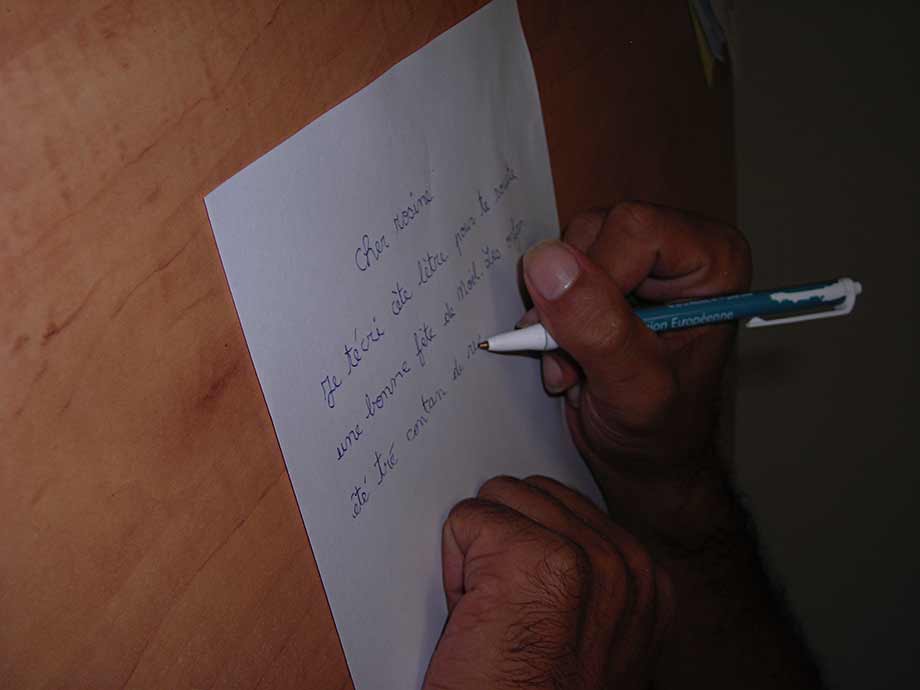 Cher rosine
Je técri cète lètre pour te souète
une bonne fête de Noël. Les
été tré contan de
sion Européenne